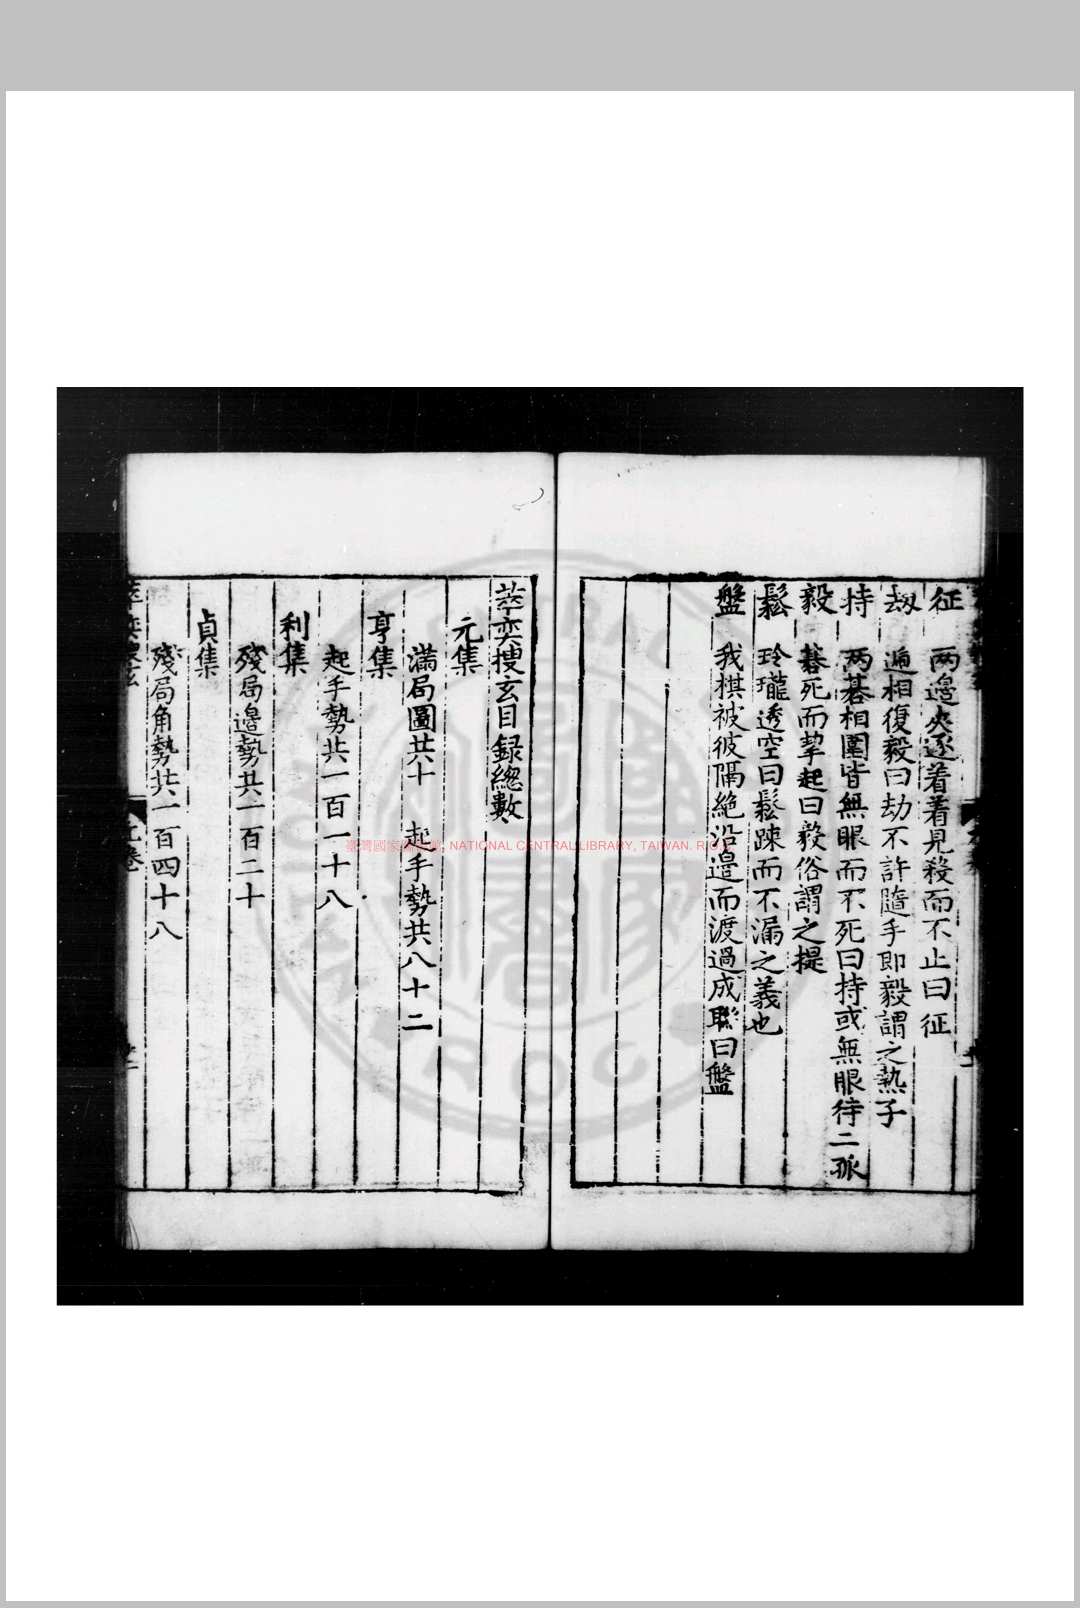 征 两邊夾逐着着見殺而不止曰征
刼 遍相復毅曰劫不許隨手即毅謂之熱子
持 两碁相圍皆無眼而不死曰持或無眼待二孤
毅 碁死而挈起曰毅俗謂之提
鬆 玲瓏透空曰鬆踈而不漏之義也
盤 我棋被彼隔絶沿邉而渡過成聮曰盤
萃奕搜玄目録緫數
元集
滿局圖共十 起手勢共八十二
亨集
起手勢共一百一十八
利集
殘局邉勢共一百二十
貞集
殘局角勢共一百四十八
NATIONAL CENTRAL LIBRARY, TAIWAN. R.O.C